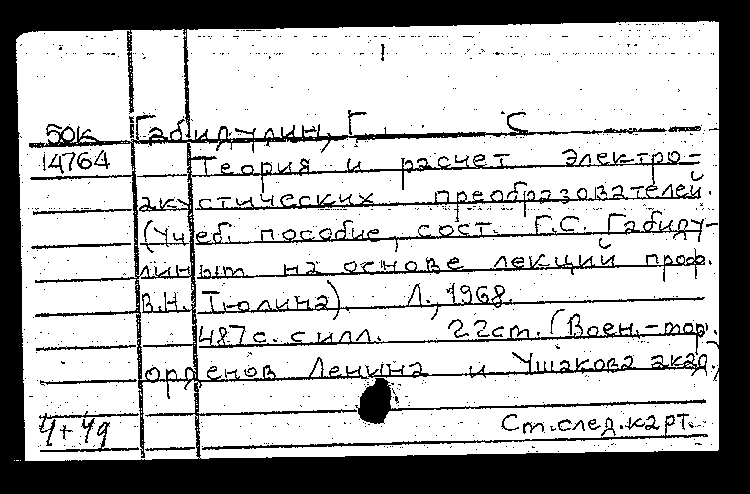 50к Габидулин, Г. С
14764 Теория и расчет электро-
акустических преобразователей.
(Учеб. пособие, сост. Г.С. Габиду-
линым на основе лекций проф.
В.Н. Тюлина). Л., 1968.
487 с. с илл. 22 ст. (Воен.-мор.
орденов Ленина и Ушакова акад.)
Ст. след. карт.